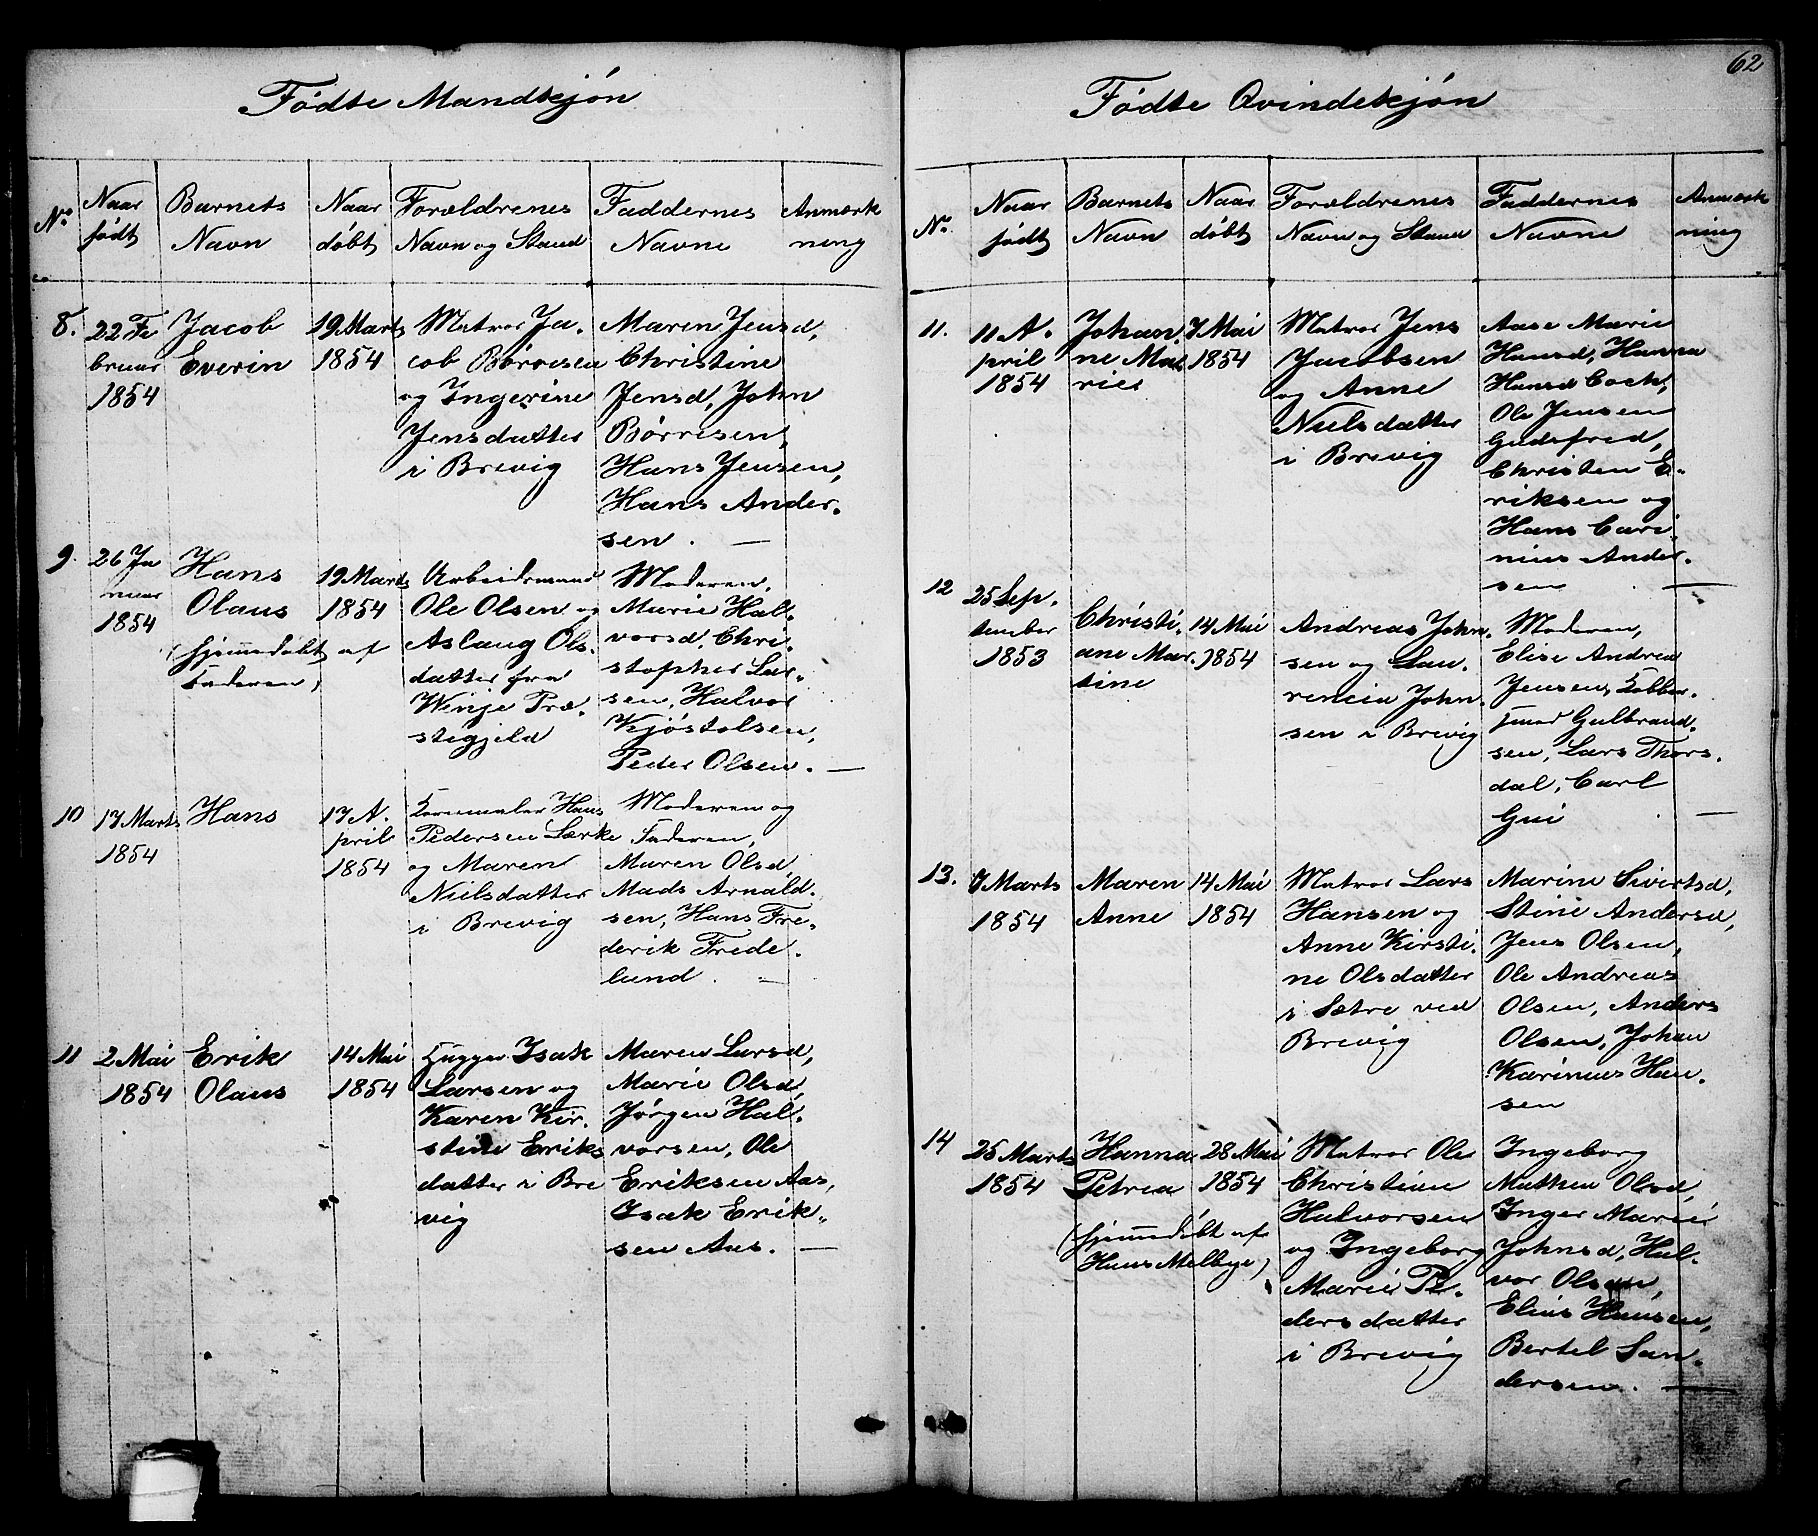 62
Fødte Mandkjøn
No
Naar født
Barnets Navn
Naar døbt
Forældrenes Navn og Stand
Faddernes Navne
Anmærk ning
8.
22 Fe
bruar
1854
Jacob
Everin
19 Marts
1854
Matros Ja-
cob Børresen
og Ingerine
Jensdatter
i Brevig
Maren Jensd,
Christine
Jensd, John
Børresen,
Hans Jensen,
Hans Ander-
sen. —
9.
26 Ja
nuar
1854
Hans
Olaus
(hjemmedøbt af
Faderen)
19 Marts
1854
Arbeidsmand
Ole Olsen og
Aslaug Ols-
datter fra
Winje Præ-
stegjeld
Moderen,
Marie Hal-
vorsd, Chri-
stopher Lar-
sen, Halvor
Kjøstolsen,
Peder Olsen. —
10
17 Marts
1854
Hans
17 A-
pril
1854
Kornmaler Hans
Pedersen Lærke
og Maren
Nielsdatter
i Brevig
Moderen og
Faderen,
Maren Olsd,
Mads Arnald-
sen, Hans Fre-
derik Frede-
lund. —
11
2 Mai
1854
Erik
Olaus
14 Mai
1854
Hugger Isak
Larsen og
Karen Kir-
stine Eriks
datter i Bre
vig
Maren Larsd,
Marie Olsd,
Jørgen Hal-
vorsen, Ole
Eriksen Aas,
Isak Erik-
sen Aas. —
Fødte Qvindekjøn
No.
Naar født
Barnets Navn
Naar døbt
Forældrenes Navn og Stand
Faddernes Navne
Anmærk ning
11.
11 A-
pril
1854
Johan-
ne Ma-
rie
7 Mai
1854
Matros Jens
Jacobsen
og Anne
Nielsdatter
i Brevig
Aase Marie
Hansd, Hanna
Hansd Cock,
Ole Jensen
Gudsfred,
Christen E-
riksen og
Hans Cari-
nius Ander-
sen —
12
25 Sep-
tember
1853
Christi-
ane Mar-
tine
14 Mai
1854
Andreas John-
sen og Lau-
rencia John-
sen i Brevig
Moderen,
Elise Andrea
Jensen, Kobber-
smed Gulbrand-
sen, Lars Thors-
dal, Carl
Gui —
13.
7 Marts
1854
Maren
Anne
14 Mai
1854
Matros Lars
Hansen og
Anne Kirsti-
ne Olsdatter
i Sætre ved
Brevig
Marine Sivertsd,
Stine Andersd,
Jens Olsen,
Ole Andreas
Olsen, Anders
Olsen, Johan
Karinius Han-
sen
14
25 Marts
1854
Hanna
Petrea
(hjemmedøbt af
Hans Melbye)
28 Mai
1854
Matros Ole
Christian
Halvorsen
og Ingeborg
Marie Pe-
dersdatter
i Brevig
Ingeborg
Mathea Olsd,
Inger Marie
Johnsd, Hal-
vor Olsen,
Elias Hansen,
Bertel San-
dersen. —